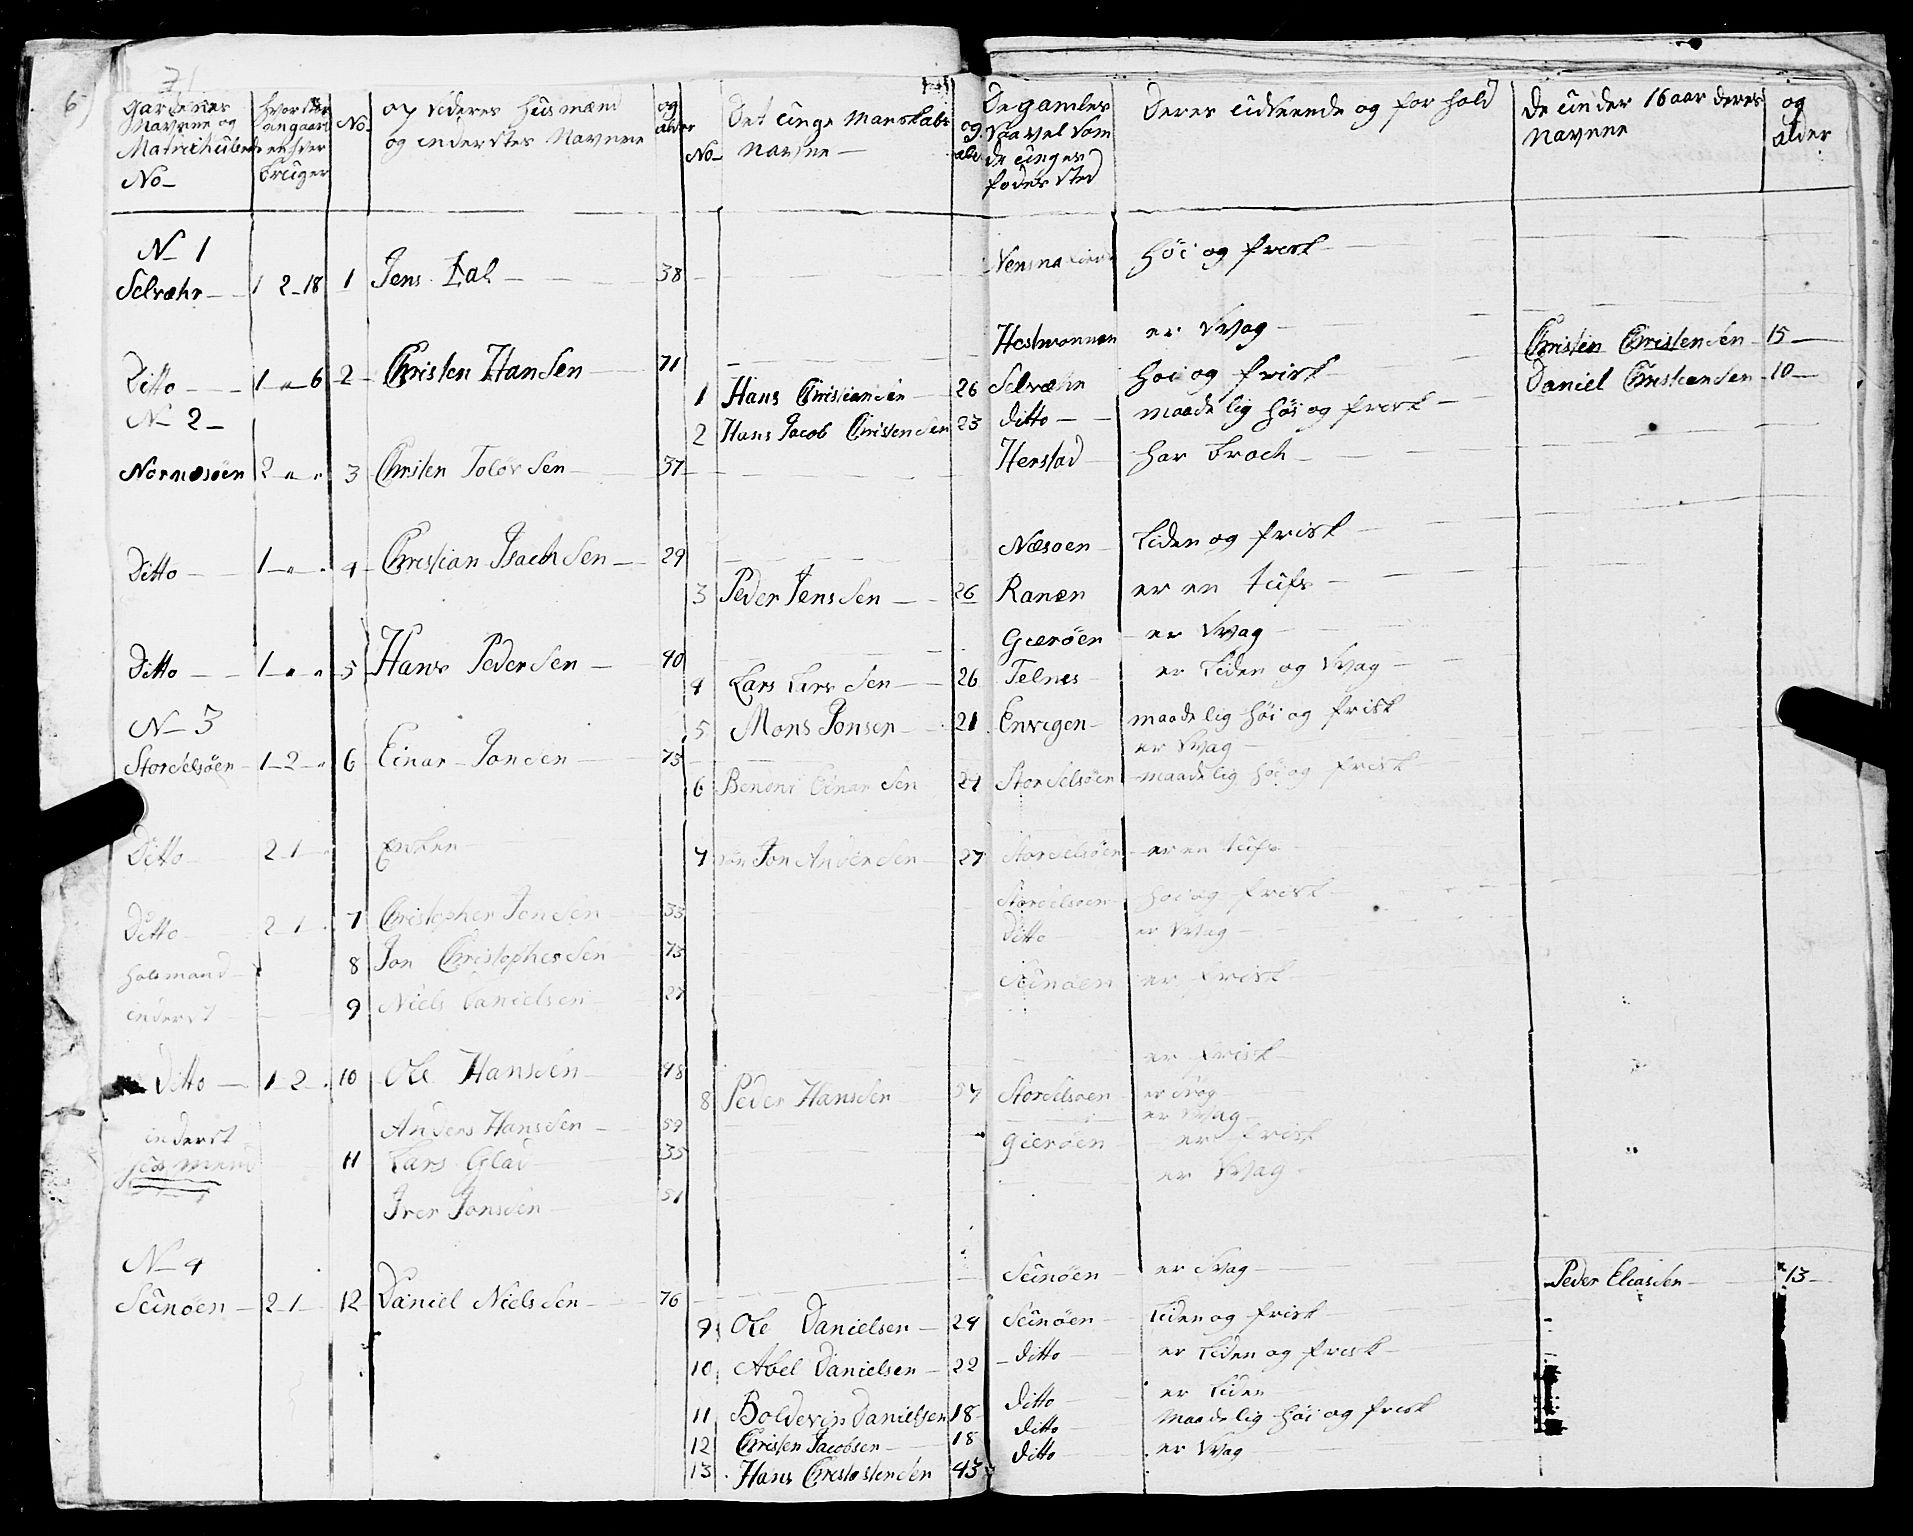 6
Gardenes Navnne og Matrichulerte No
hvor stor angaard enhver bruger
No
og videres husmænd og inderstes Navnne
og alder
No
Det unge Manskabs navne
og alder
De gamles saavel som de unges fødes sted
Deres udseende og forhold
De under 16 aar deres Navnne
og alder
N 1
Selvæhr 1 2 18 1 Jens Dal 38 høi og frisk
Hestmonnen er svag
Christen Christensen 15
Ditto 1 " 6 2 Christen Hansen 71
1 Hans Christiansen 26 Selvæhr høi og frisk
Daniel Christiansen 10
N 2
2 Hans Jacob Christensen 23 ditto maadelig høi og frisk
Nornæsøen 2 " " 3 Christen Tolørsen 37 Herstad har Broch
Ditto 1 " " 4 Christian Isachsen 29 Næsøen Liden og frisk
3 Peder Jenssen 26 Ranen er en tufs
Ditto 1 " " 5 Hans Pedersen 40 Gierøen er svag
4 Lars Larssen 26 Telnes er Liden og svag
N 3
5 Mons Jonsen 21 Envigen maadelig høi og frisk
Storselsøen 1 2 " 6 Einar Jonsen 75 er svag
6 Benoni Einarsen 24 Storselsøen maadelig høi og frisk
Ditto 2 1 Enken
7 Jon Andersen 27 Storselsøen er en tufs
Ditto 2 1 7 Christopher Jonsen 33 Storselsøen høi og frisk
husmand 8 Jon Christophersen 75 Ditto er svag
inderst 9 Niels Danielsen 27 Sünøen er frisk
Ditto 1 2 10 Ole Hansen 48 er frisk
8 Peder Hansen 54 Storselsøen er svag
inderst Anders Hanssen 59 er svag
11 Lars Glad 35 Gierøen er frisk
Iver Jonsen 51 er svag
N 4
Sünøen 2 1 12 Daniel Nielssen 76 Sünøen er svag
Peder Eliassen 13
9 Ole Danielsen 24 Sünøen Liden og frisk
10 Abel Danielsen 22 ditto er Liden og frisk
11 Boldevin Danielsen 18 ditto er Liden
12 Christen Jacobsen 18 ditto maadelig høi og frisk
13 Hans Christostensen 43 ditto er svag